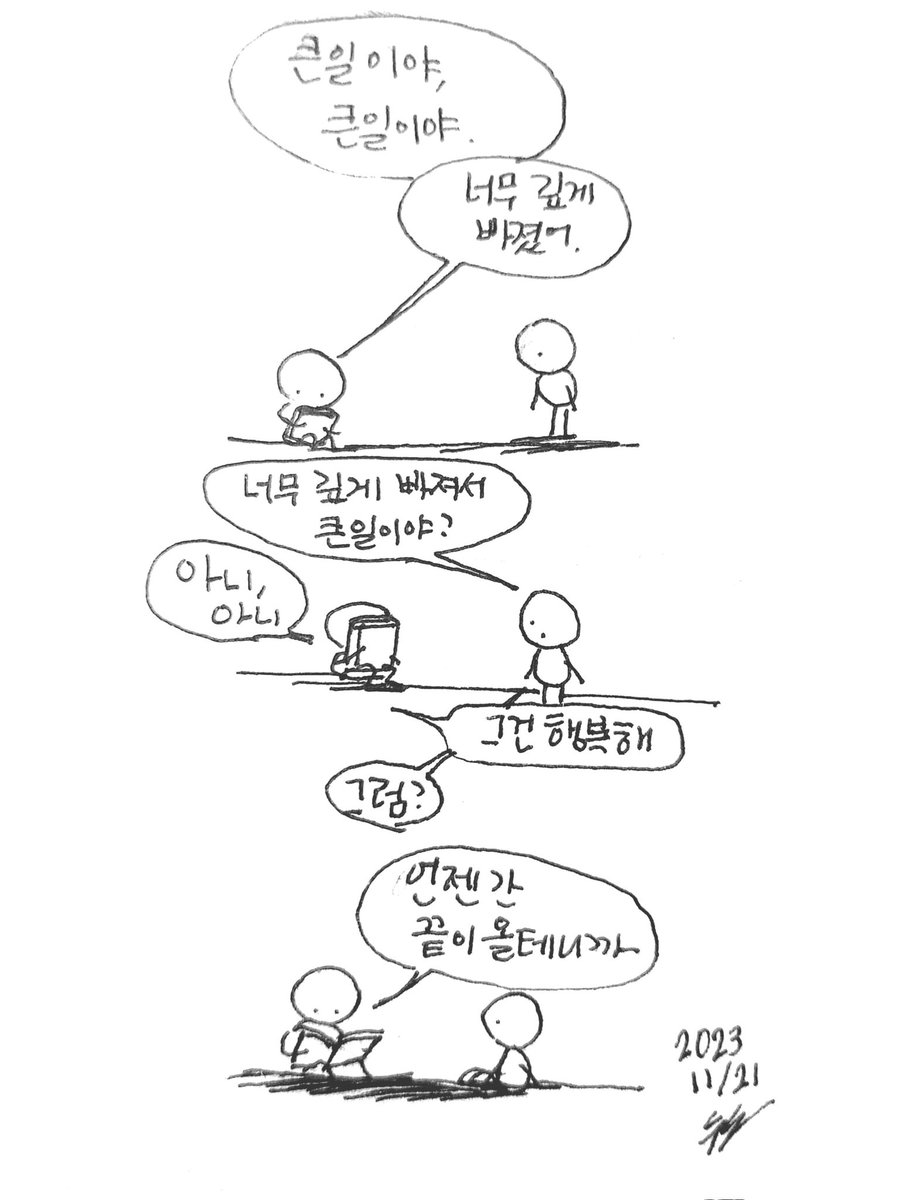 큰일이야,
큰일이야.
너무 깊게
빠졌어.
너무 깊게 빠져서
큰일이야?
아니,
아니
그건 행복해
그럼?
언젠간
끝이 올테니까
2023
11/21